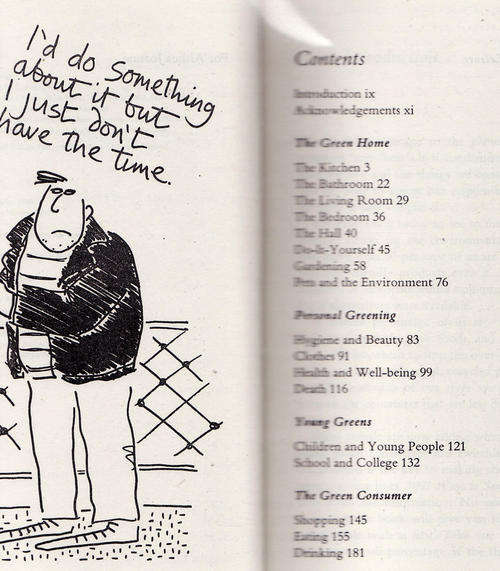 I'd do something
about it but
I just don't
have the time.
Contents
Introduction ix
Acknowledgements xi
The Green Home
The Kitchen 3
The Bathroom 22
The Living Room 29
The Bedroom 36
The Hall 40
Do-It-Yourself 45
Gardening 58
Pets and the Environment 76
Personal Greening
Hygiene and Beauty 83
Clothes 91
Health and Well-being 99
Death 116
Young Greens
Children and Young People 121
School and College 132
The Green Consumer
Shopping 145
Eating 155
Drinking 181